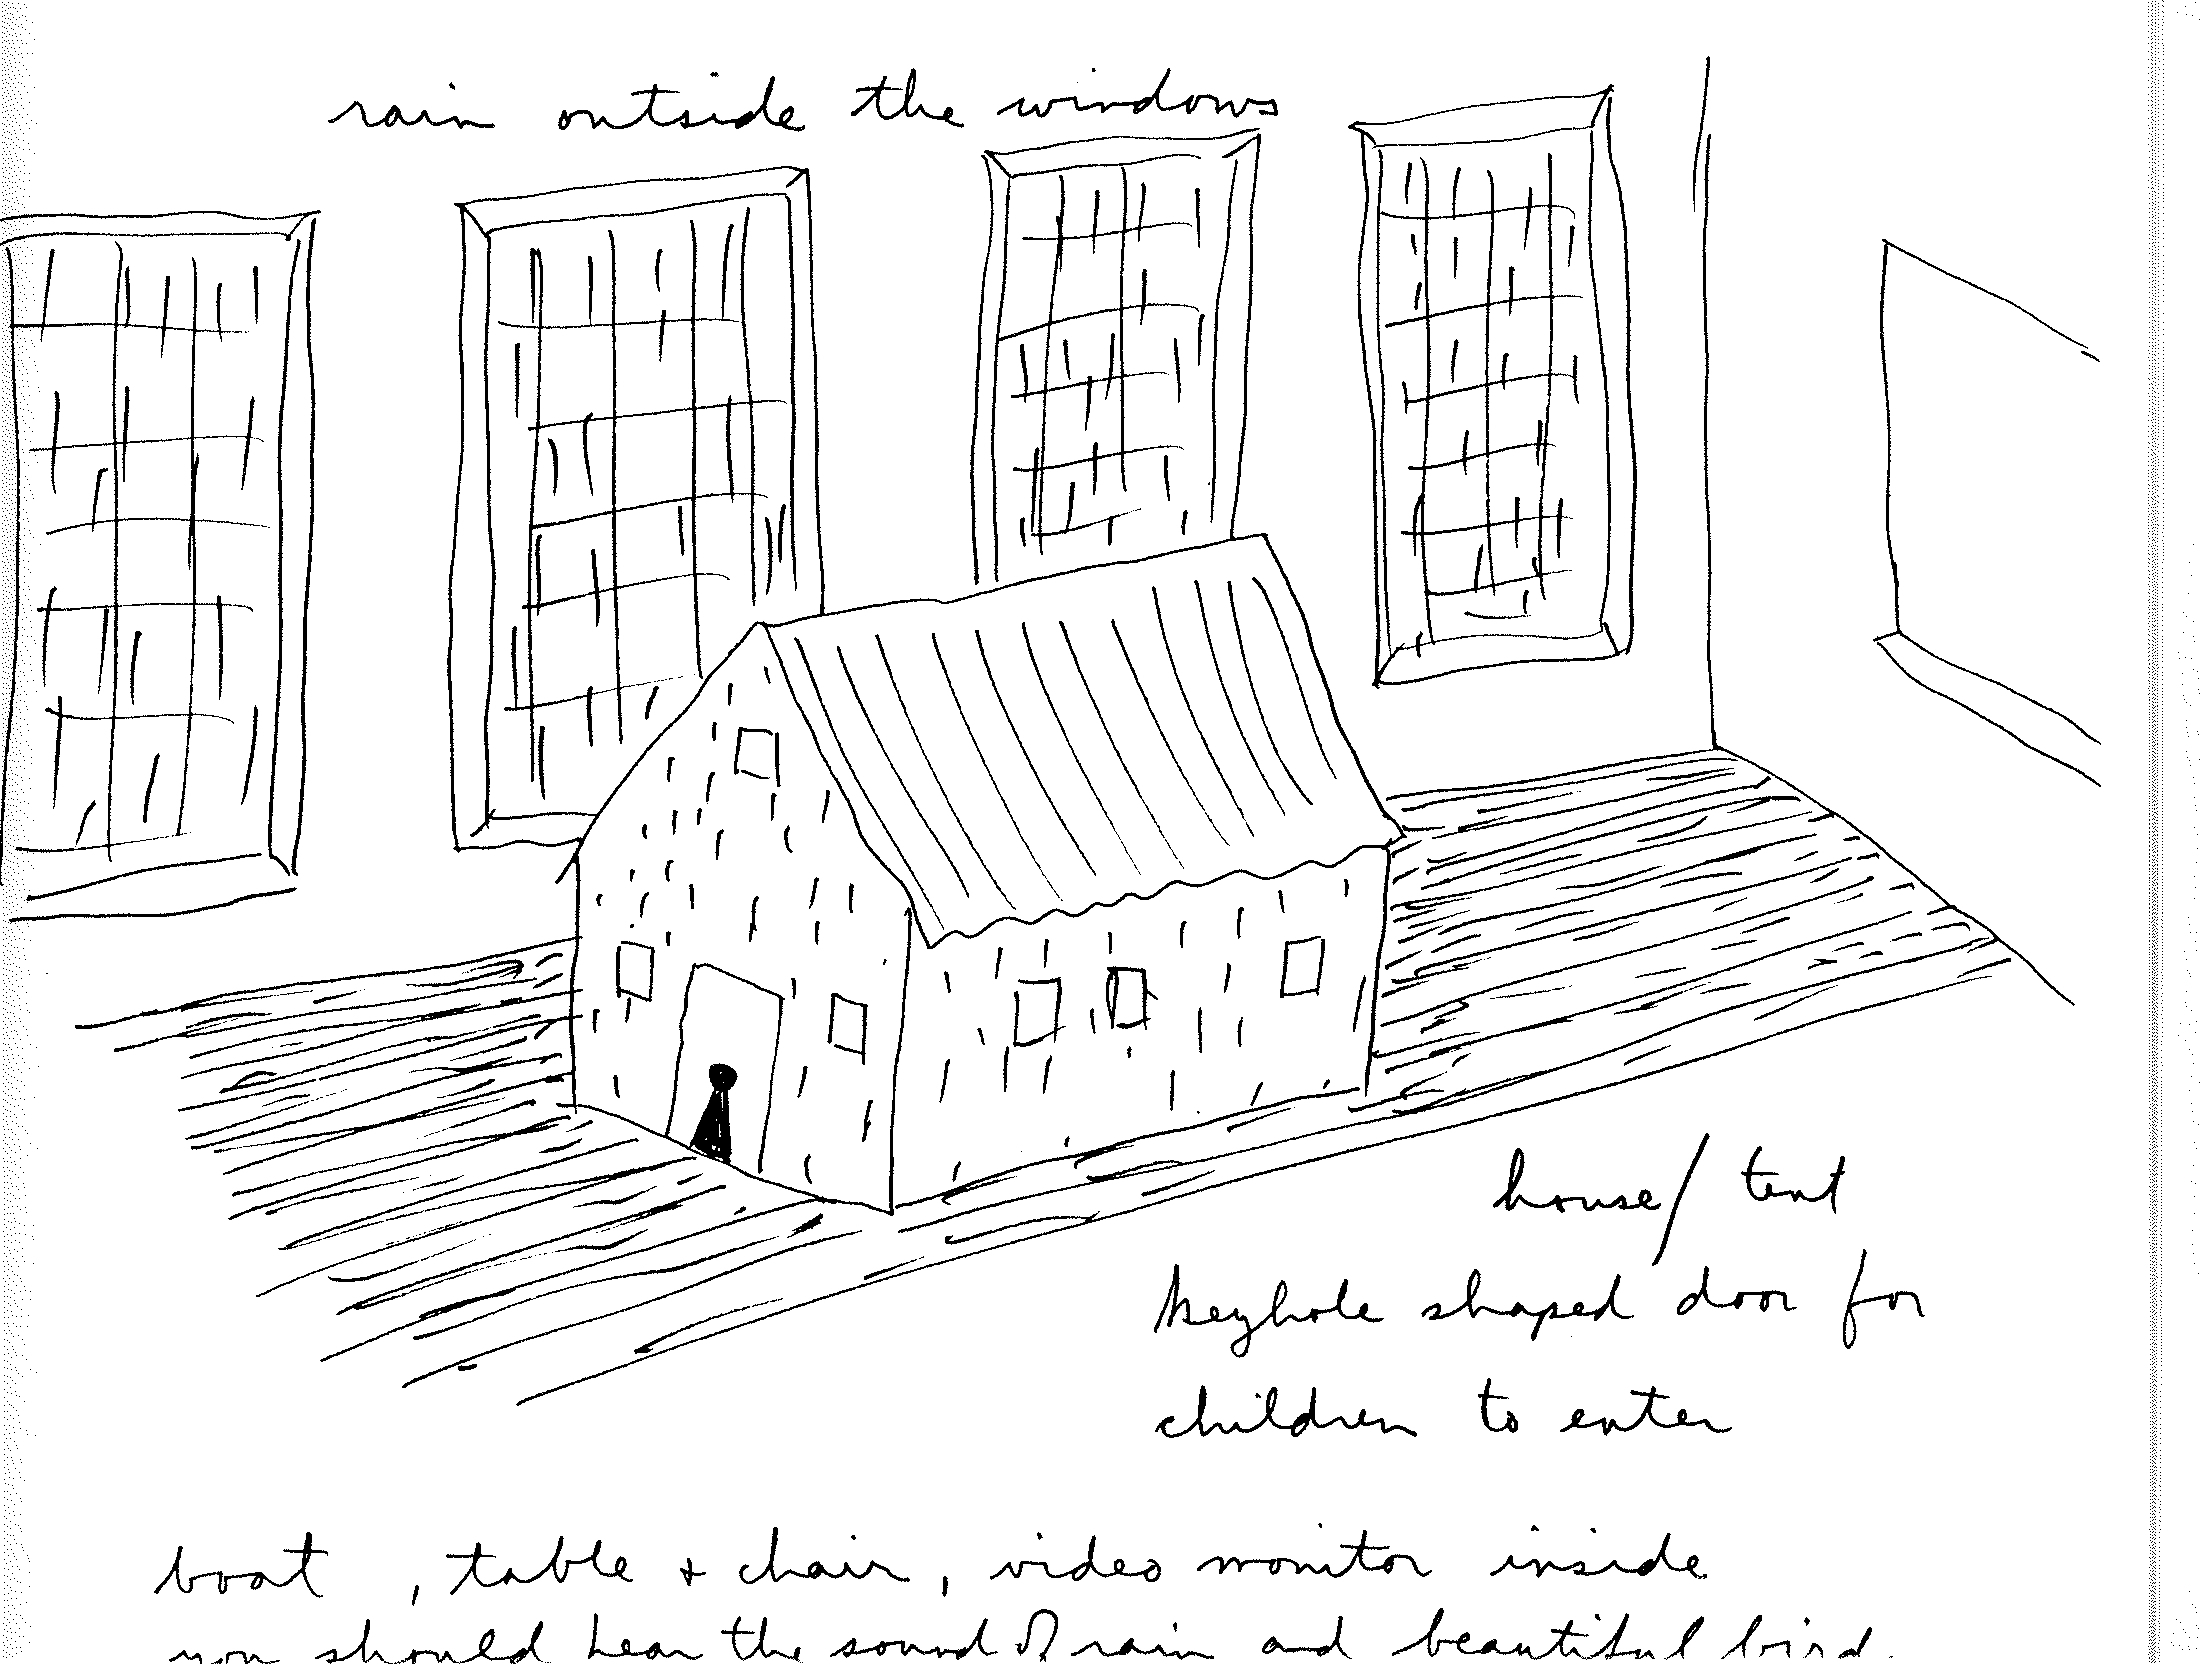 rain outside the windows
house/ tent
keyhole shaped door for
children to enter
boat , table + chair, video monitor inside
you should hear the sound of rain and beautiful bird